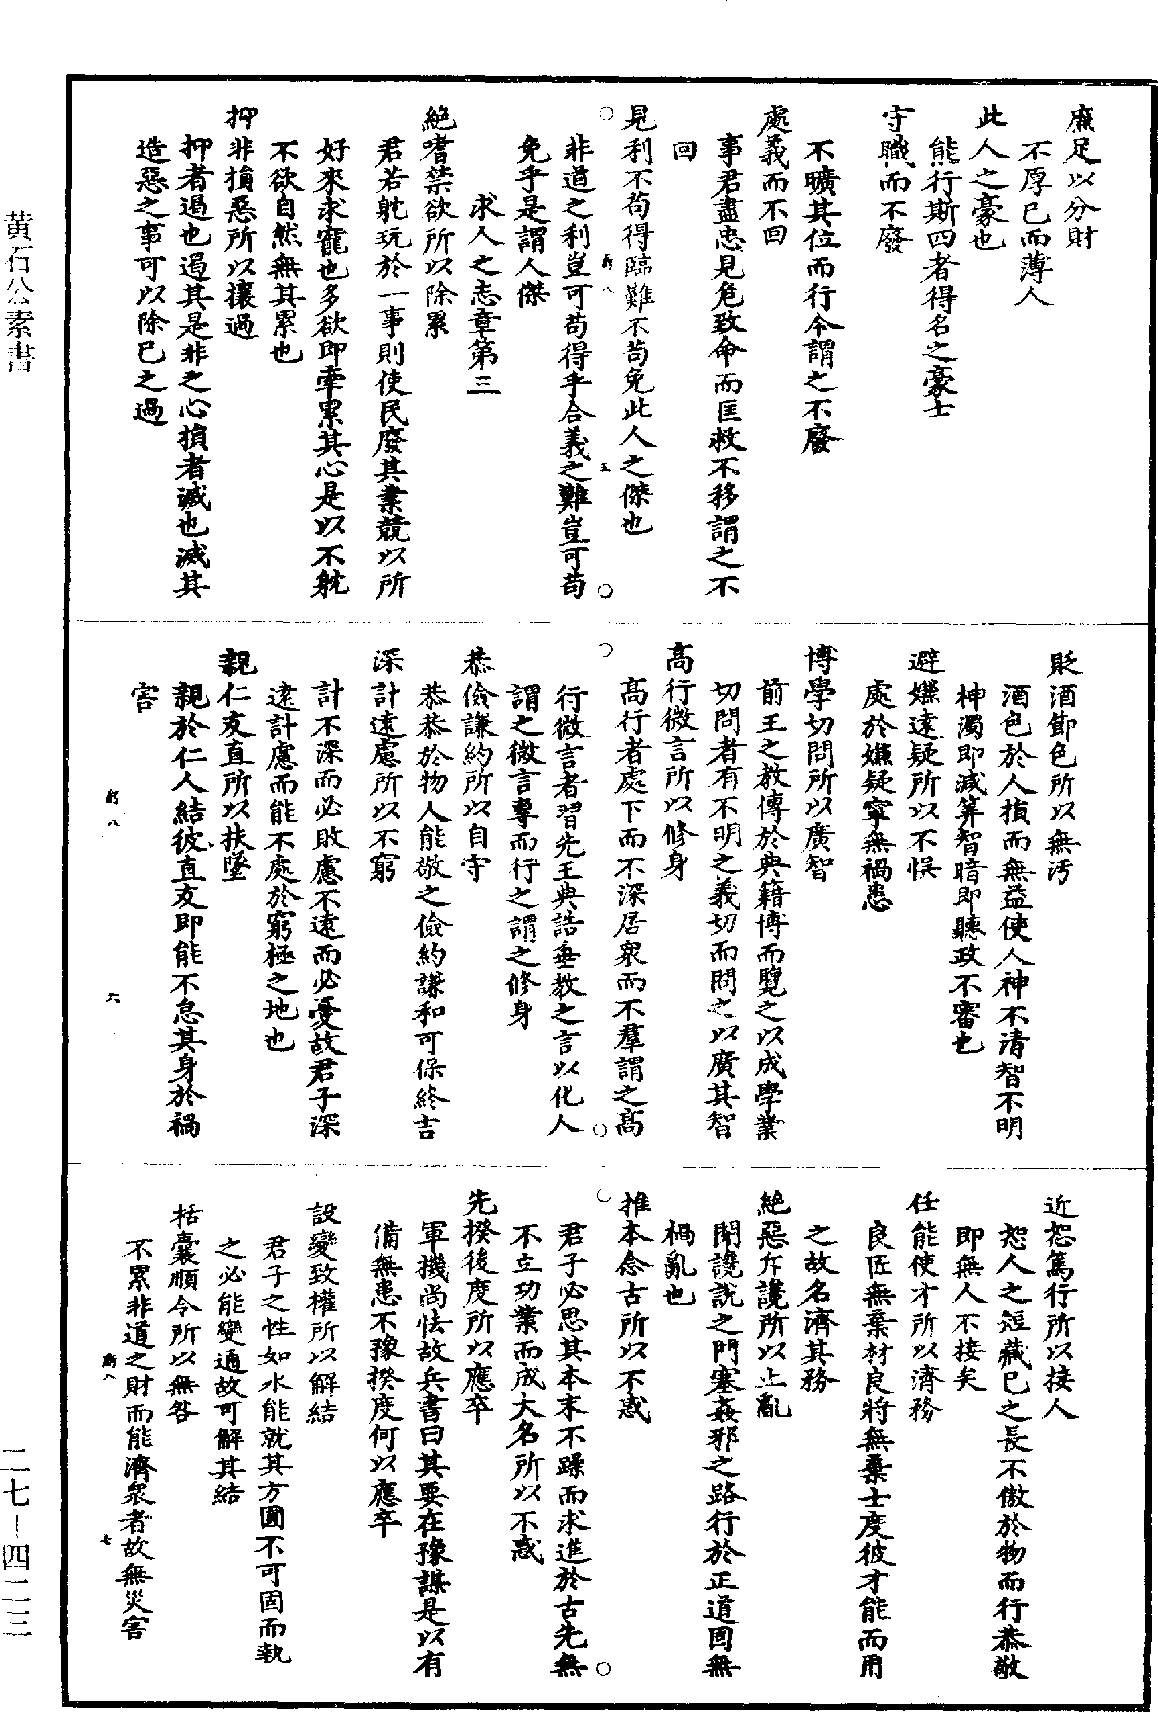 廉足以分財
不厚己而薄人
此人之豪也
能行斯四者得名之豪士
守職而不廢
不曠其位而行令謂之不廢
處義而不回
事君盡忠見危致命而匡救不移謂之不
回
見利不苟得臨難不苟免此人之傑也
非道之利豈可苟得乎合義之難豈可苟
免乎是謂人傑
求人之志章第三
絕嗜禁欲所以除累
君若躭玩於一事則使民廢其業競以所
好來求寵也多欲即牽累其心是以不躭
不欲自然無其累也
抑非損惡所以攘過
抑者遏也遏其是非之心損者減也減其
造惡之事可以除己之過
貶酒節色所以無汚
酒色於人損而無益使人神不清智不明
神濁即減筭智暗即聽政不審也
避嫌遠疑所以不悮
處於嫌疑寧無禍患
博學切問所以廣智
前王之教傳於典籍博而覽之以成學業
切問者有不明之義切而問之以廣其智
高行微言所以修身
高行者處下而不深居衆而不羣謂之高
行微言者習先王典誥垂教之言以化人
謂之微言專而行之謂之修身
恭儉謙約所以自守
恭恭於物人能敬之儉約謙和可保終吉
深計遠慮所以不窮
計不深而必敗慮不遠而必憂故君子深
遠計慮而能不處於窮極之地也
親仁友直所以扶墜
親於仁人結彼直友即能不怠其身於禍
害
近恕篤行所以接人
恕人之短藏己之長不傲於物而行恭敬
即無人不接矣
任能使才所以濟務
良匠無棄材良將無棄士度彼才能而用
之故名濟其務
絕惡斥讒所以止亂
開讜說之門塞姦邪之路行於正道固無
禍亂也
推本念古所以不惑
君子必思其本末不躁而求進於古先無
不立功業而成大名所以不惑
先揆後度所以應卒
軍機尚怯故兵書曰其要在豫謀是以有
備無患不豫揆度何以應卒
設變致權所以解結
君子之性如水能就其方圓不可固而執
之必能變通故可解其結
括囊順令所以無咎
不累非道之財而能濟衆者故無災害
黃石公素書
二七—四二三
五
六
七